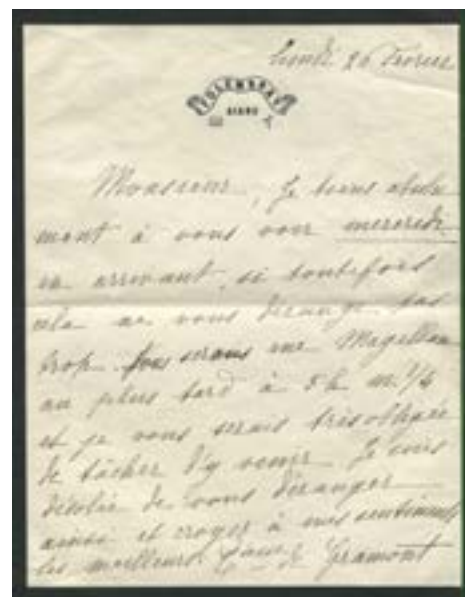 lundi 26 Février
GIENS
Monsieur, Je tiens absolu
ment à vous voir mercredi
en arrivant, si toutefois
cela ne vous dérange pas
trop. Nous serons rue Magellan
au plus tard à 5h m. 1/4
et je vous serais très obligée
de tâcher d'y venir. Je suis
désolée de vous déranger
ainsi et croyez à mes sentiments
les meilleurs. Gramont